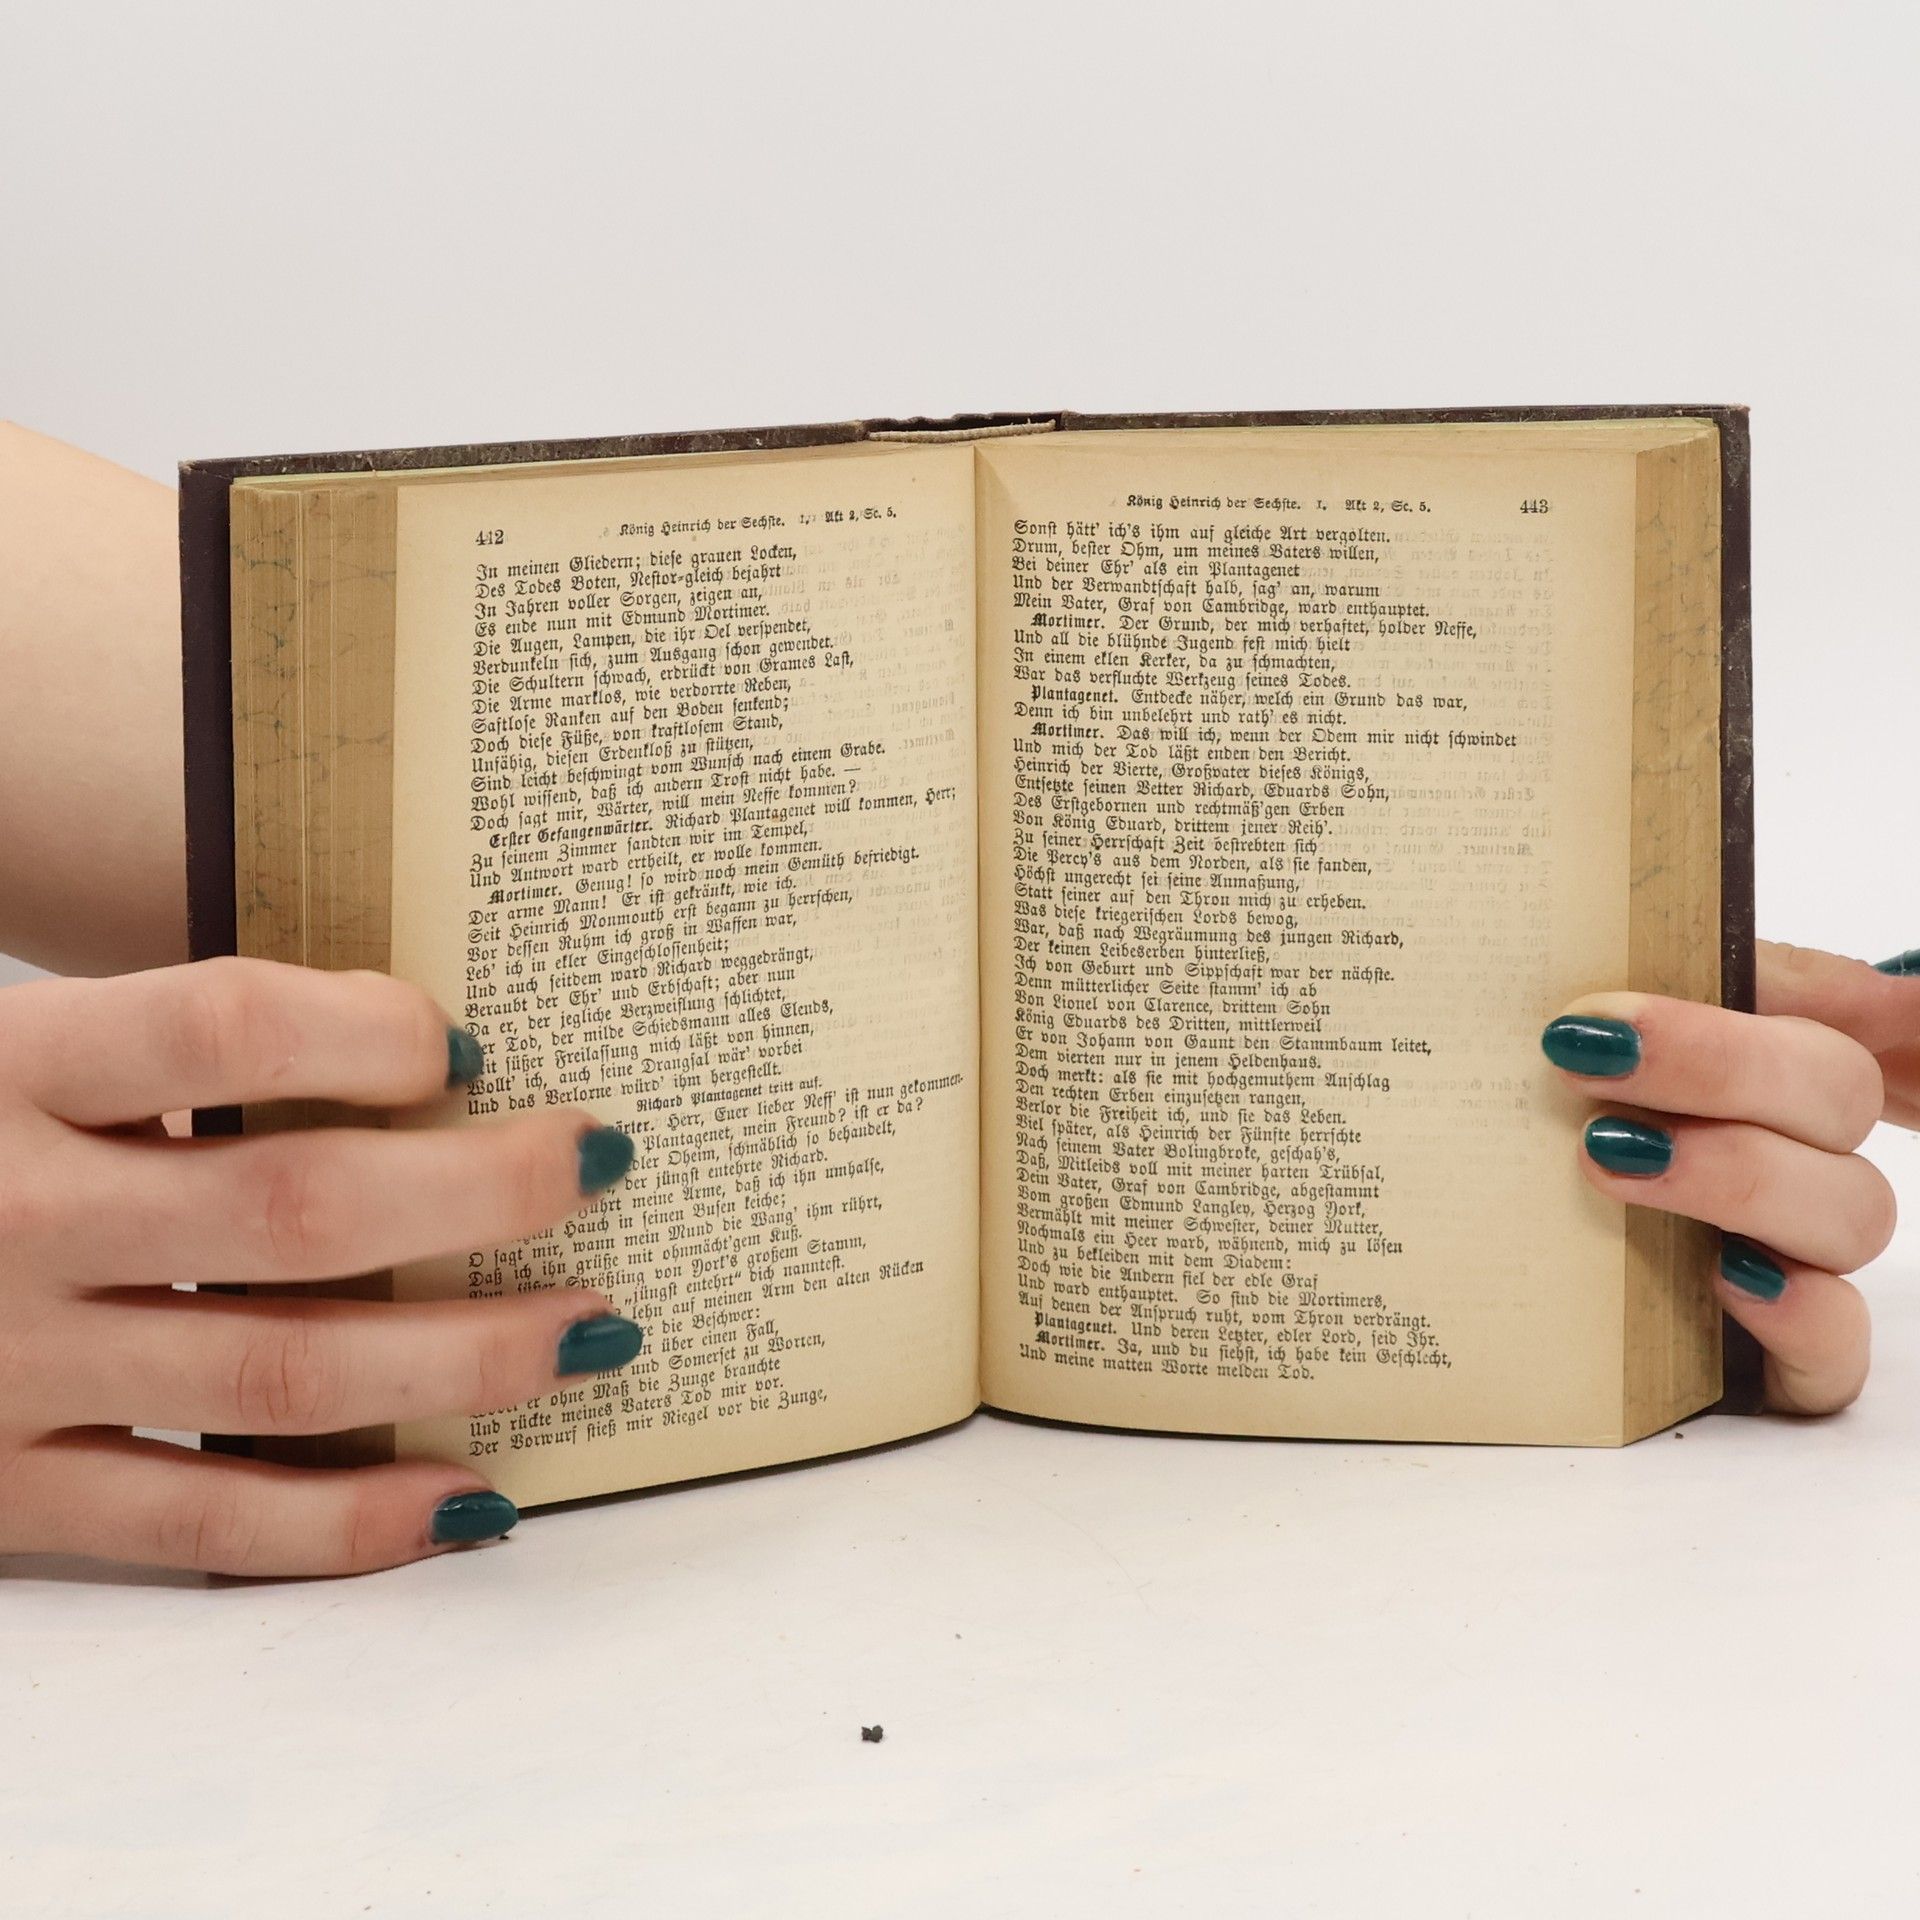 412 König Heinrich der Sechste. I. Akt 2, Sc. 5.
In meinen Gliedern; diese grauen Locken,
Des Todes Boten, Nestor-gleich bejahrt
In Jahren voller Sorgen, zeigen an,
Es ende nun mit Edmund Mortimer.
Die Augen, Lampen, die ihr Oel verspendet,
Verdunkeln sich, zum Ausgang schon gewendet.
Die Schultern schwach, erdrückt von Grames Last,
Die Arme marklos, wie verdorrte Reben,
Saftlose Ranken auf den Boden senkend;
Doch diese Füße, von kraftlosem Stand,
Unfähig, diesen Erdenkloß zu stützen,
Sind leicht beschwingt vom Wunsch nach einem Grabe.
Wohl wissend, daß ich andern Trost nicht habe. —
Doch sagt mir, Wärter, will mein Neffe kommen?
Erster Gefangenwärter. Richard Plantagenet will kommen, Herr;
Zu seinem Zimmer sandten wir im Tempel,
Und Antwort ward ertheilt, er wolle kommen.
Mortimer. Genug! so wird noch mein Gemüth befriedigt.
Der arme Mann! Er ist gekränkt, wie ich.
Seit Heinrich Monmouth erst begann zu herrschen,
Vor dessen Ruhm ich groß in Waffen war,
Leb' ich in ekler Eingeschlossenheit;
Und auch seitdem ward Richard weggedrängt,
Beraubt der Ehr' und Erbschaft; aber nun
Da er, der jegliche Verzweiflung schlichtet,
er Tod, der milde Schiedsmann alles Elends,
it süßer Freilassung mich läßt von hinnen,
Wollt' ich, auch seine Drangsal wär' vorbei
Und das Verlorne würd' ihm hergestellt.
Richard Plantagenet tritt auf.
wärter. Herr, Euer lieber Neff' ist nun gekommen.
Plantagenet, mein Freund? ist er da?
dler Oheim, schmählich so behandelt,
der jüngst entehrte Richard.
führt meine Arme, daß ich ihn umhalse,
Hauch in seinen Busen keiche;
O sagt mir, wann mein Mund die Wang' ihm rührt,
Daß ich ihn grüße mit ohnmächt'gem Kuß.
Sprößling von York's großem Stamm,
„jüngst entehrt“ dich nanntest.
lehn auf meinen Arm den alten Rücken
die Beschwer:
über einen Fall,
mir und Somerset zu Worten,
er ohne Maß die Zunge brauchte
Und rückte meines Vaters Tod mir vor.
Der Vorwurf stieß mir Riegel vor die Zunge,
König Heinrich der Sechste. I. Akt 2, Sc. 5. 443
Sonst hätt' ich's ihm auf gleiche Art vergolten.
Drum, bester Ohm, um meines Vaters willen,
Bei deiner Ehr' als ein Plantagenet
Und der Verwandtschaft halb, sag' an, warum
Mein Vater, Graf von Cambridge, ward enthauptet.
Mortimer. Der Grund, der mich verhaftet, holder Neffe,
Und all die blühnde Jugend fest mich hielt
In einem eklen Kerker, da zu schmachten,
War das verfluchte Werkzeug seines Todes.
Plantagenet. Entdecke näher, welch ein Grund das war,
Denn ich bin unbelehrt und rath' es nicht.
Mortimer. Das will ich, wenn der Odem mir nicht schwindet
Und mich der Tod läßt enden den Bericht.
Heinrich der Vierte, Großvater dieses Königs,
Entsetzte seinen Vetter Richard, Eduards Sohn,
Des Erstgebornen und rechtmäß'gen Erben
Von König Eduard, drittem jener Reih'.
Zu seiner Herrschaft Zeit bestrebten sich
Die Percy's aus dem Norden, als sie fanden,
Höchst ungerecht sei seine Anmaßung,
Statt seiner auf den Thron mich zu erheben.
Was diese kriegerischen Lords bewog,
War, daß nach Wegräumung des jungen Richard,
Der keinen Leibeserben hinterließ,
Ich von Geburt und Sippschaft war der nächste.
Denn mütterlicher Seite stamm' ich ab
Von Lionel von Clarence, drittem Sohn
König Eduards des Dritten, mittlerweil
Er von Johann von Gaunt den Stammbaum leitet,
Dem vierten nur in jenem Heldenhaus.
Doch merkt: als sie mit hochgemuthem Anschlag
Den rechten Erben einzusetzen rangen,
Verlor die Freiheit ich, und sie das Leben.
Viel später, als Heinrich der Fünfte herrschte
Nach seinem Vater Bolingbroke, geschah's,
Daß, Mitleids voll mit meiner harten Trübsal,
Dein Vater, Graf von Cambridge, abgestammt
Vom großen Edmund Langley, Herzog York,
Vermählt mit meiner Schwester, deiner Mutter,
Nochmals ein Heer warb, wähnend, mich zu lösen
Und zu bekleiden mit dem Diadem:
Doch wie die Andern fiel der edle Graf
Und ward enthauptet. So sind die Mortimers,
Auf denen der Anspruch ruht, vom Thron verdrängt.
Plantagenet. Und deren Letzter, edler Lord, seid Ihr.
Mortimer. Ja, und du siehst, ich habe kein Geschlecht,
Und meine matten Worte melden Tod.